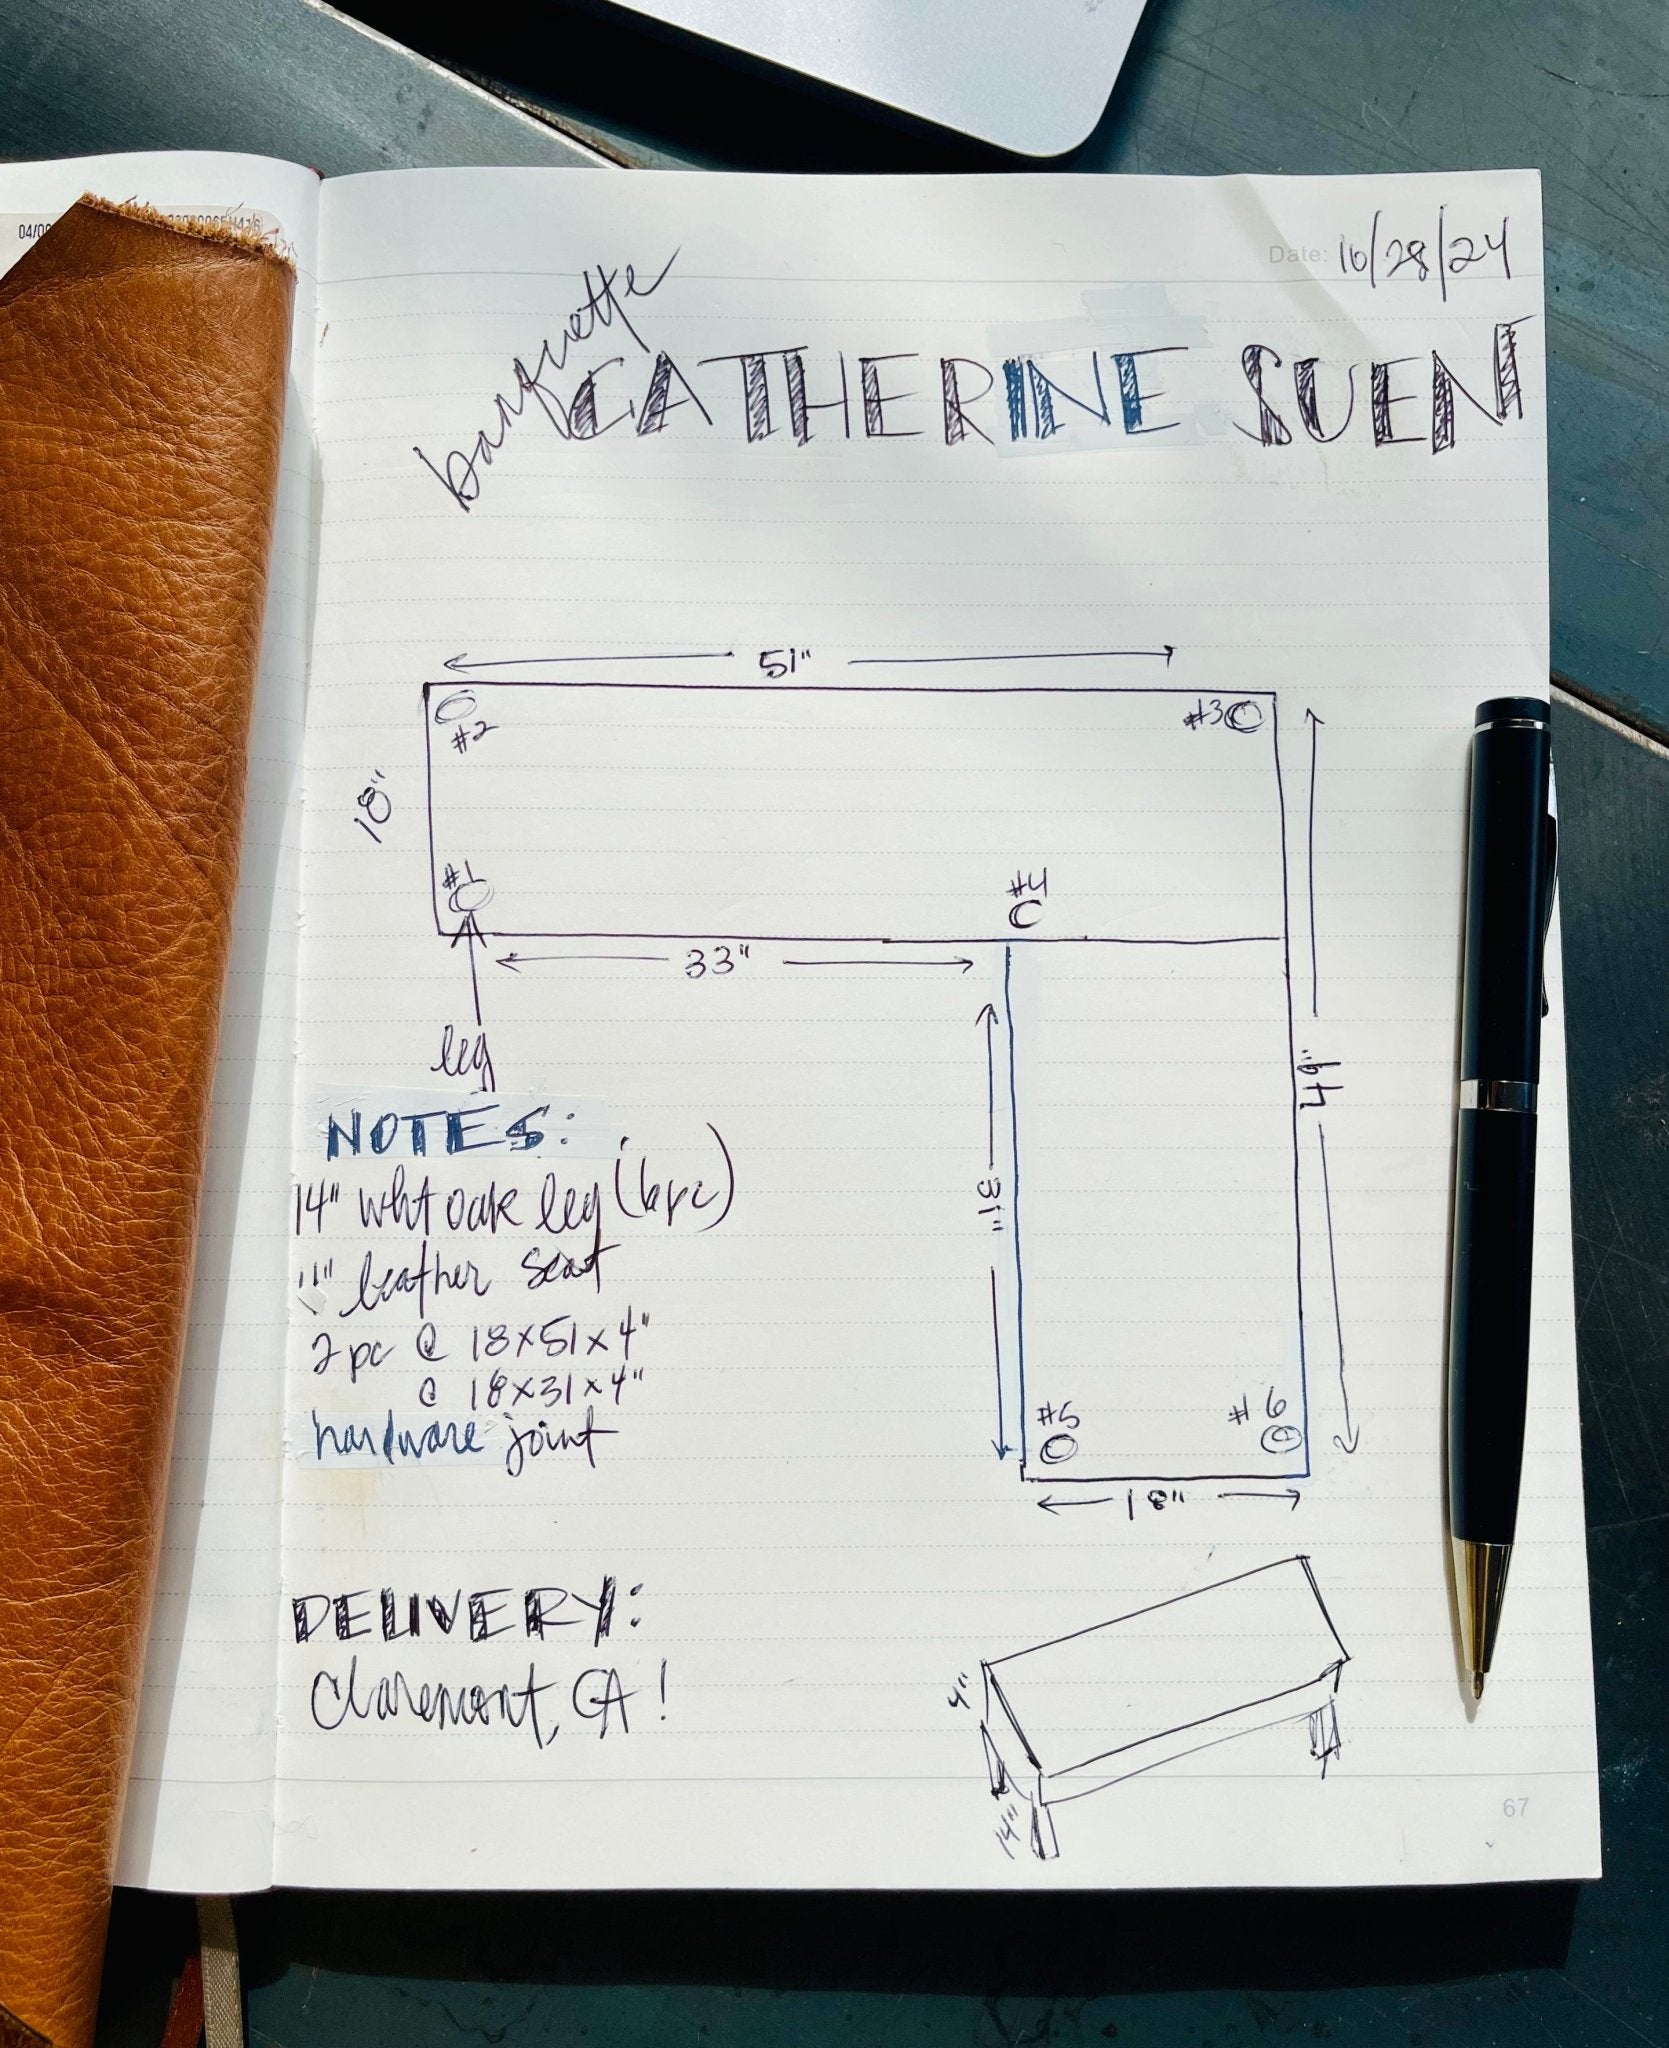 Date: 10/28/24
banquette
CATHERINE SUEN
51"
#2
#3
18"
#1
#4
33"
leg
49"
31"
NOTES:
14" wht oak leg (6pc)
leather seat
2pc @ 18x51x4"
@ 18x31x4"
hardware joint
#5
#6
18"
DELIVERY:
Claremont, CA!
4"
14"
67